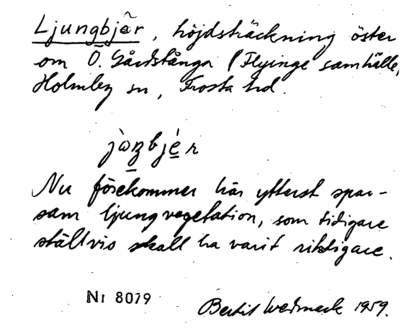 Ljungbjär, höjdsträckning öster
om Ö. Gårdstånga (Flyinge samhälle,
Holmby sn, Frosta hd.
jòŋbjér
Nu förekommer här ytterst spar-
sam ljungvegetation, som tidigare
ställvis skall ha varit rikligare.
Nr 8079
Bertil Wedmark 1959.